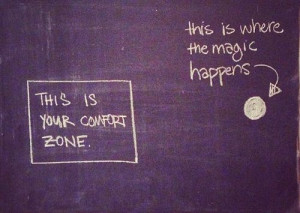 this is where
the magic
happens
THIS IS
YOUR COMFORT
ZONE.